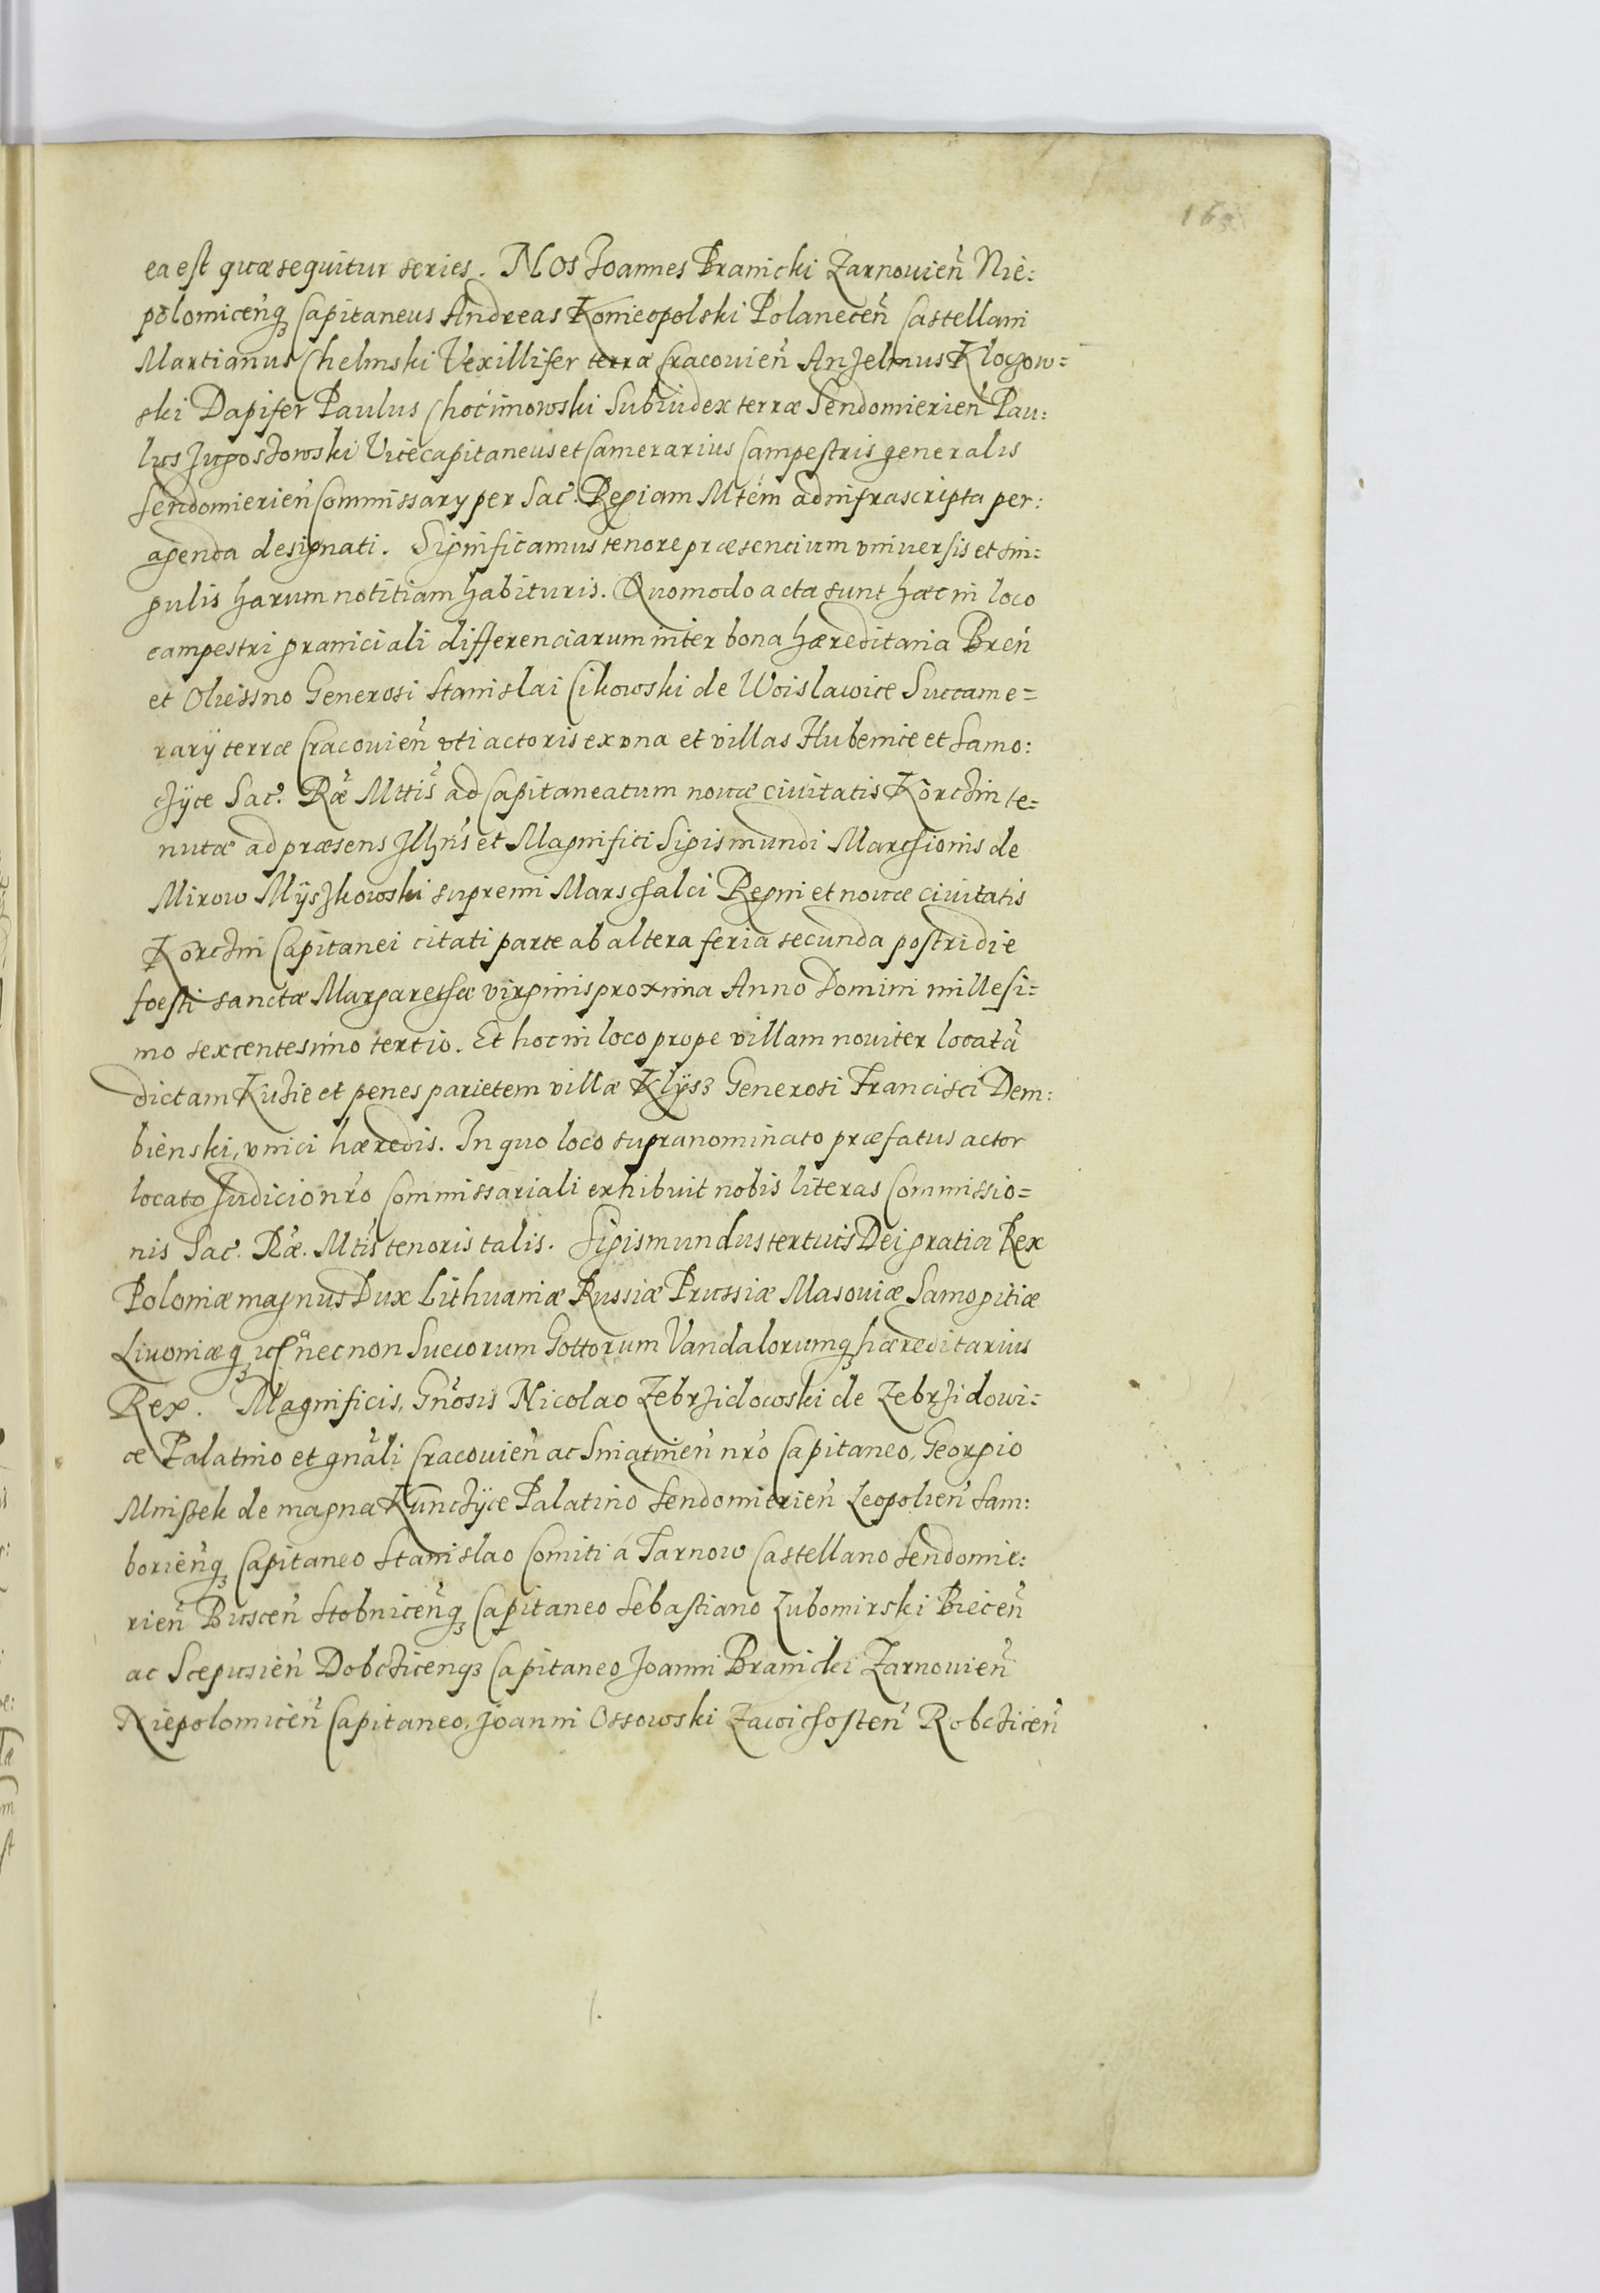 ea est quæ sequitur series. NOS Joannes Branicki Zarnouien̄ Nie:
polomicen̄q₃ Capitaneus Andreas Koniecpolski Polanecen̄ Castellani
Martianus Chelmski Vexillifer terræ Cracouien̄ Anzelmus Kloczow=
ski Dapifer Paulus Chocimowski Subiudex terræ Sendomierien̄ Pau:
lus Jugoszowski Vicecapitaneus et Camerarius Campestris generalis
Sendomierien̄ Commissary per Sac. Regiam Mtem ad infrascripta per:
agenda designati. Significamus tenore præsencium vniuersis et sin:
gulis harum notitiam habituris. Quomodo acta sunt hæc in loco
campestri graniciali differenciarum inter bona hæreditaria Bren
et Oliessno Generosi Stanislai Cikowski de Woislawice Succame=
rarÿ terræ Cracouien̄ vti actoris ex vna et villas Hubenice et Samo:
czÿce Sac. Ræ Mttis ad Capitaneatum nouæ ciuitatis Korczin te=
nutæ ad præsens Jllris et Magnifici Sigismundi Marchionis de
Mirow Mÿszkowski supremi Marschalci Regni et nouæ ciuitatis
Korczin Capitanei citati parte ab altera feria secunda postridie
foesti sanctæ Margarethæ virginis proxima Anno Domini millesi=
mo sexcentesimo tertio. Et hoc in loco prope villam nouiter locatā
dictam Kuzie et penes parietem villæ Klÿsz Generosi Francisci Dem:
bienski, vnici hæredis. In quo loco supranominato præfatus actor
locato Judicio nr̄o Commissariali exhibuit nobis literas Commissio=
nis Sac. Ræ. Mtis tenoris talis. Sigismundus tertuis Dei gratia Rex
Poloniæ magnus Dux Lithuaniæ Russiæ Prussiæ Masouiæ Samogitiæ
Liuoniæq₃ nec non Sueuorum Gottorum Vandalorumq₃ hæreditarius
Rex. Magnificis, Gn̄osis Nicolao Zebrzidowski de Zebrzidowi=
cæ Palatino et gn̄ali Cracouien̄ ac Sniatinen̄ nr̄o Capitaneo, Georgio
Mnissek de magna Kunczÿce Palatino Sendomierien̄ Leopolien̄ Sam:
borien̄q₃ Capitaneo Stanislao Comiti á Tarnow Castellano Sendomie:
rien̄ Buscen̄ Stobnicen̄q₃ Capitaneo Sebastiano Lubomirski Biecen̄
ac Scepusien̄ Dobczicenq₃ Capitaneo Joanni Branicki Zarnouien̄
Niepolomicen̄ Capitaneo, Joanni Ossowski Zawichosten̄ Robczicen̄